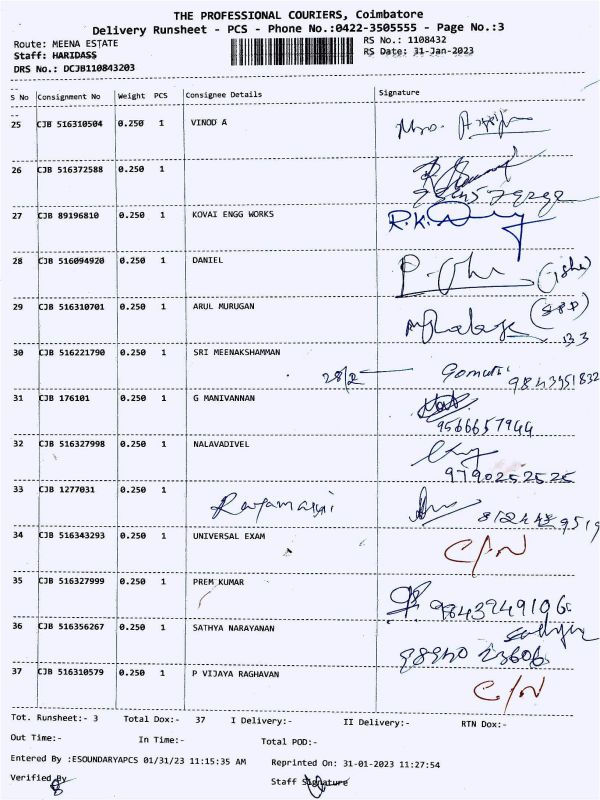 THE PROFESSIONAL COURIERS, Coimbatore
Delivery Runsheet - PCS - Phone No.:0422-3505555 - Page No.:3
Route: MEENA ESTATE
RS No.: 1108432
Staff: HARIDASS
RS Date: 31-Jan-2023
DRS No.: DCJB110843203
S No Consignment No Weight PCS Consignee Details Signature
25 CJB 516310504 0.250 1 VINOD A
26 CJB 516372588 0.250 1
27 CJB 89196810 0.250 1 KOVAI ENGG WORKS R.K.
28 CJB 516094920 0.250 1 DANIEL
29 CJB 516310701 0.250 1 ARUL MURUGAN
133
30 CJB 516221790 0.250 1 SRI MEENAKSHAMMAN
28/2 Gomati 9843951832
31 CJB 176101 0.250 1 G MANIVANNAN
9566657944
32 CJB 516327998 0.250 1 NALAVADIVEL
9790252525
33 CJB 1277031 0.250 1
34 CJB 516343293 0.250 1 UNIVERSAL EXAM C/N
35 CJB 516327999 0.250 1 PREM KUMAR
36 CJB 516356267 0.250 1 SATHYA NARAYANAN
98940 23606
37 CJB 516310579 0.250 1 P VIJAYA RAGHAVAN C/N
Tot. Runsheet:- 3 Total Dox:- 37 I Delivery:- II Delivery:- RTN Dox:-
Out Time:- In Time:- Total POD:-
Entered By :ESOUNDARYAPCS 01/31/23 11:15:35 AM Reprinted On: 31-01-2023 11:27:54
Verified By Staff Signature